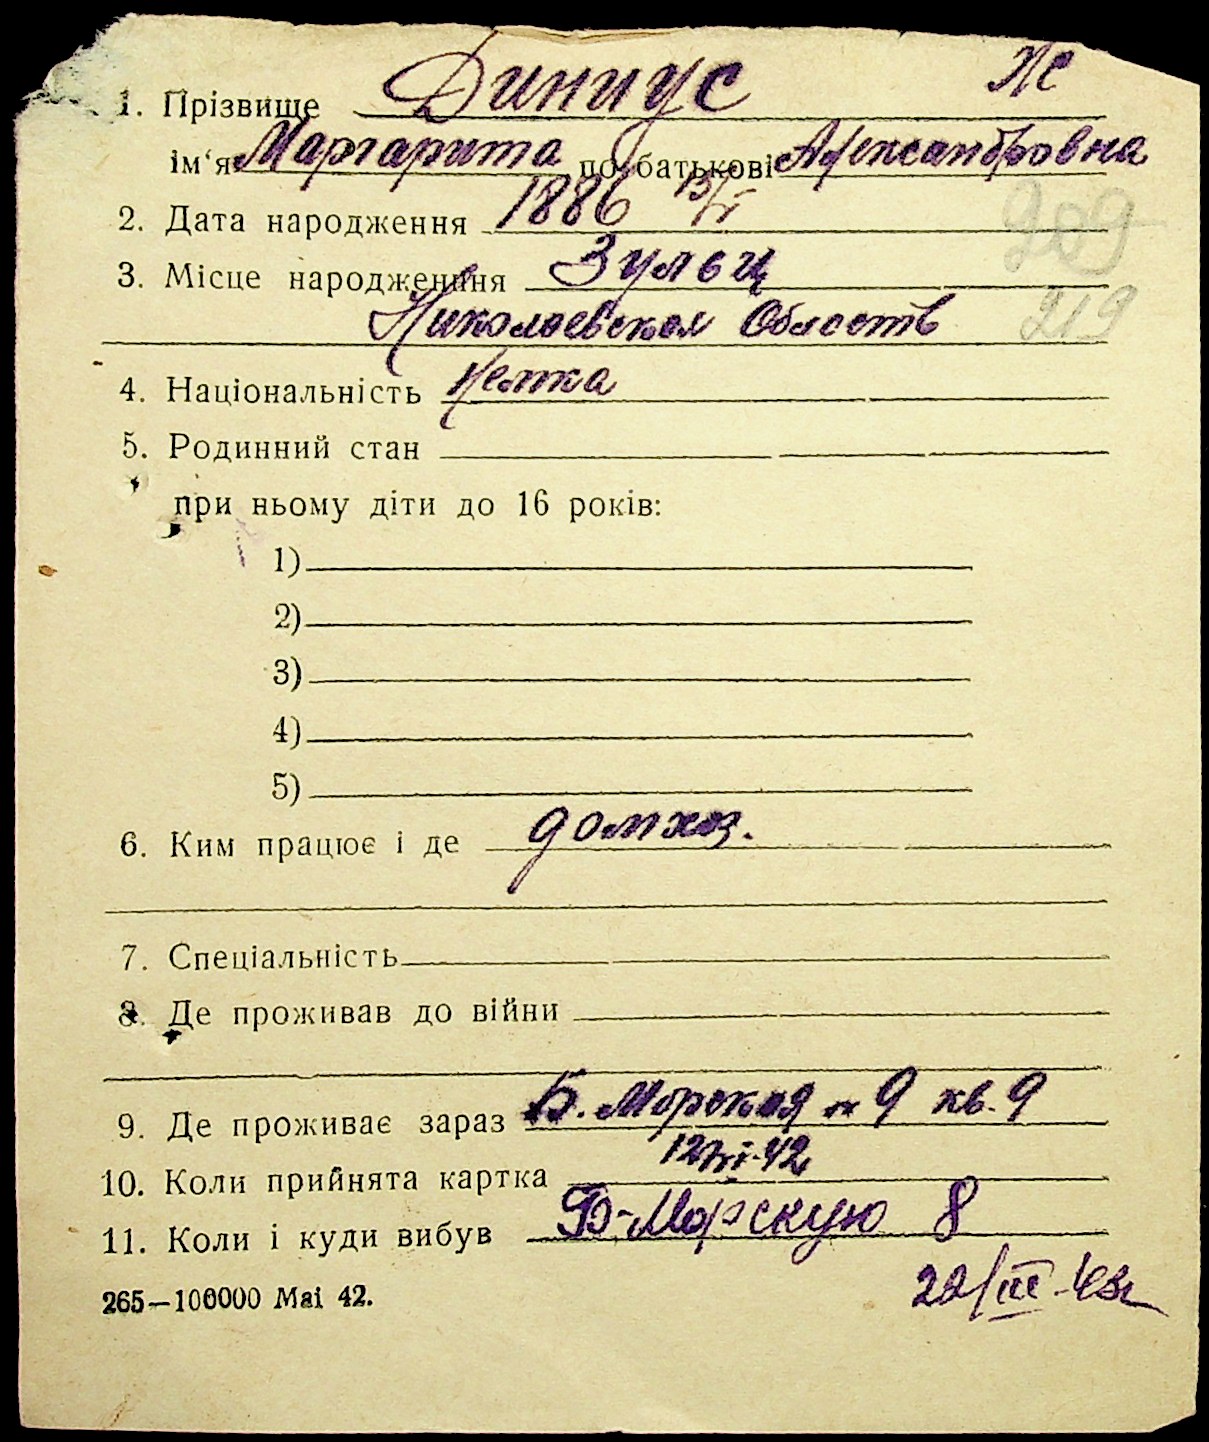 Ж
1. Прізвище Диниус
ім‘я Маргарита по батькові Александровна
2. Дата народження 1886 13/VI
209
3. Місце народження Зульц
Николаевская Область 219
4. Національність Немка
5. Родинний стан
при ньому діти до 16 років:
1)
2)
3)
4)
5)
6. Ким працює і де домхоз.
7. Спеціальність
8. Де проживав до війни
9. Де проживає зараз Б. Морская 9 кв. 9
10. Коли прийнята картка 12/VI-42
11. Коли і куди вибув Б-Морскую 8
265—100000 Mai 42. 22/III-43г